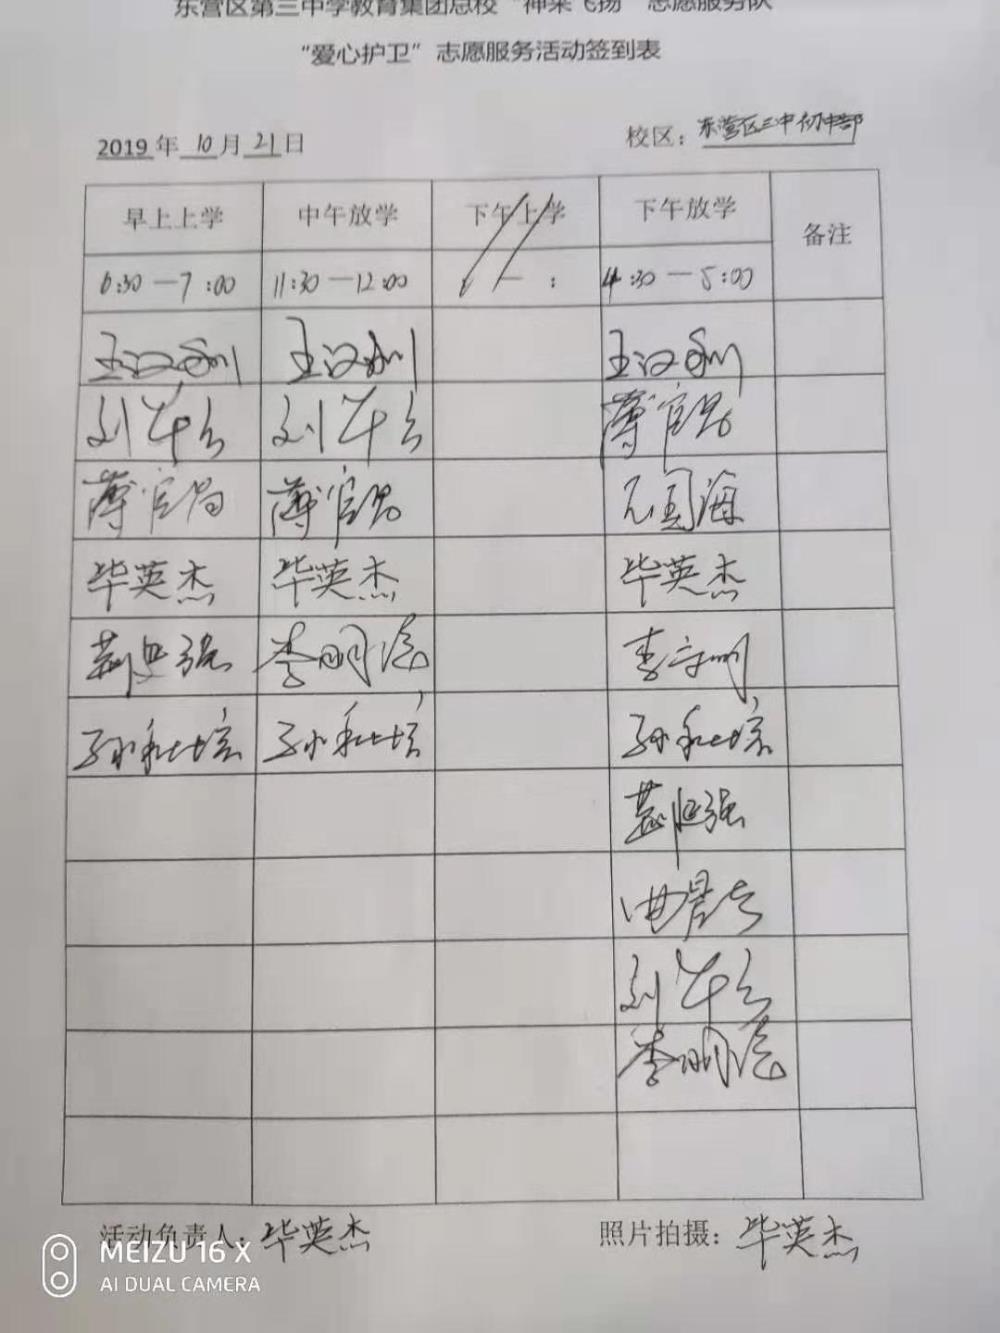 东营区第三中学教育集团总校“神采飞扬”志愿服务队
“爱心护卫”志愿服务活动签到表
2019 年 10 月 21 日 校区：东营区三中初中部
早上上学 中午放学 下午上学 下午放学 备注
6:30 — 7:00 11:30 — 12:00 — : 4:30 — 5:00
王汉利 王汉利 王汉利
刘华 刘华 薄官
薄官 薄官 国海
毕英杰 毕英杰 毕英杰
强 李明 李
孙 孙 孙
强
曲
刘华
李明
活动负责人：毕英杰 照片拍摄：毕英杰
MEIZU 16 X
AI DUAL CAMERA